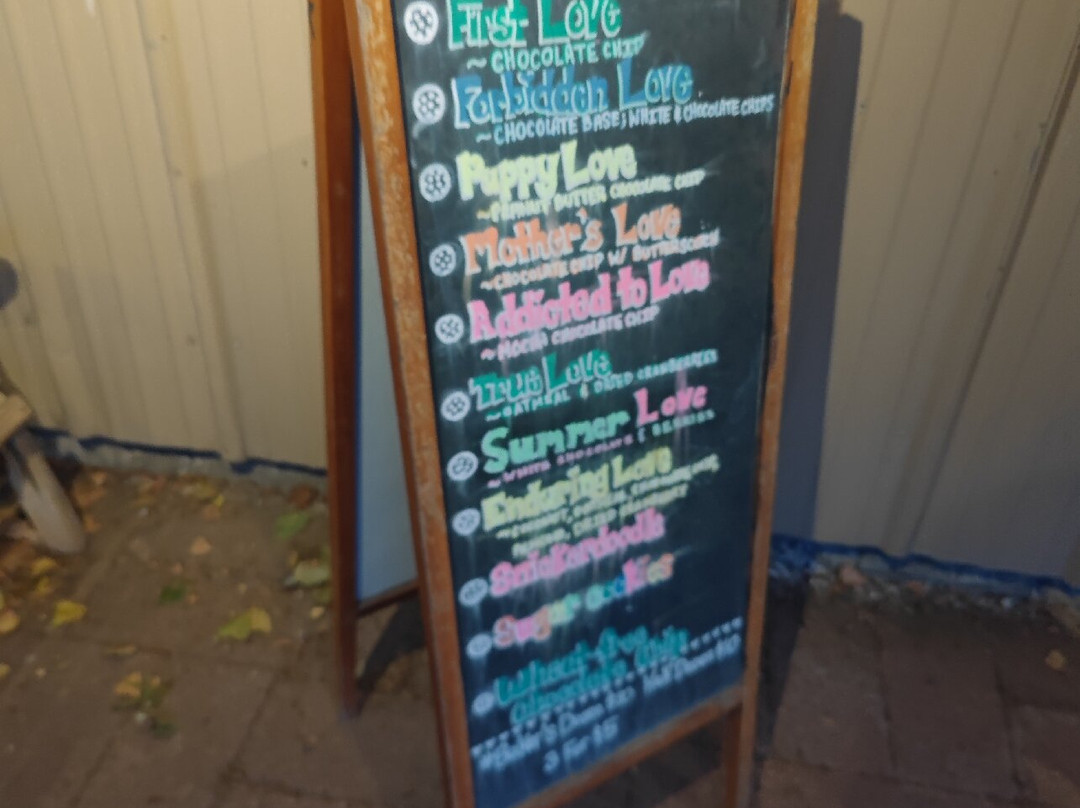 First Love
~ CHOCOLATE CHIP
Forbidden Love
~CHOCOLATE BASE; WHITE & CHOCOLATE CHIPS
Puppy Love
~PEANUT BUTTER CHOCOLATE CHIP
Mother's Love
~CHOCOLATE CHIP W/ BUTTERSCOTCH
Addicted to Love
~MOCHA CHOCOLATE CHIP
True Love
~OATMEAL & DRIED CRANBERRIES
Summer Love
~WHITE CHOCOLATE
Enduring Love
Snickerdoodle
Sugar cookies
Wheat-free
Chocolate Chip
Baker's Dozen Half Dozen $10
3 For $5